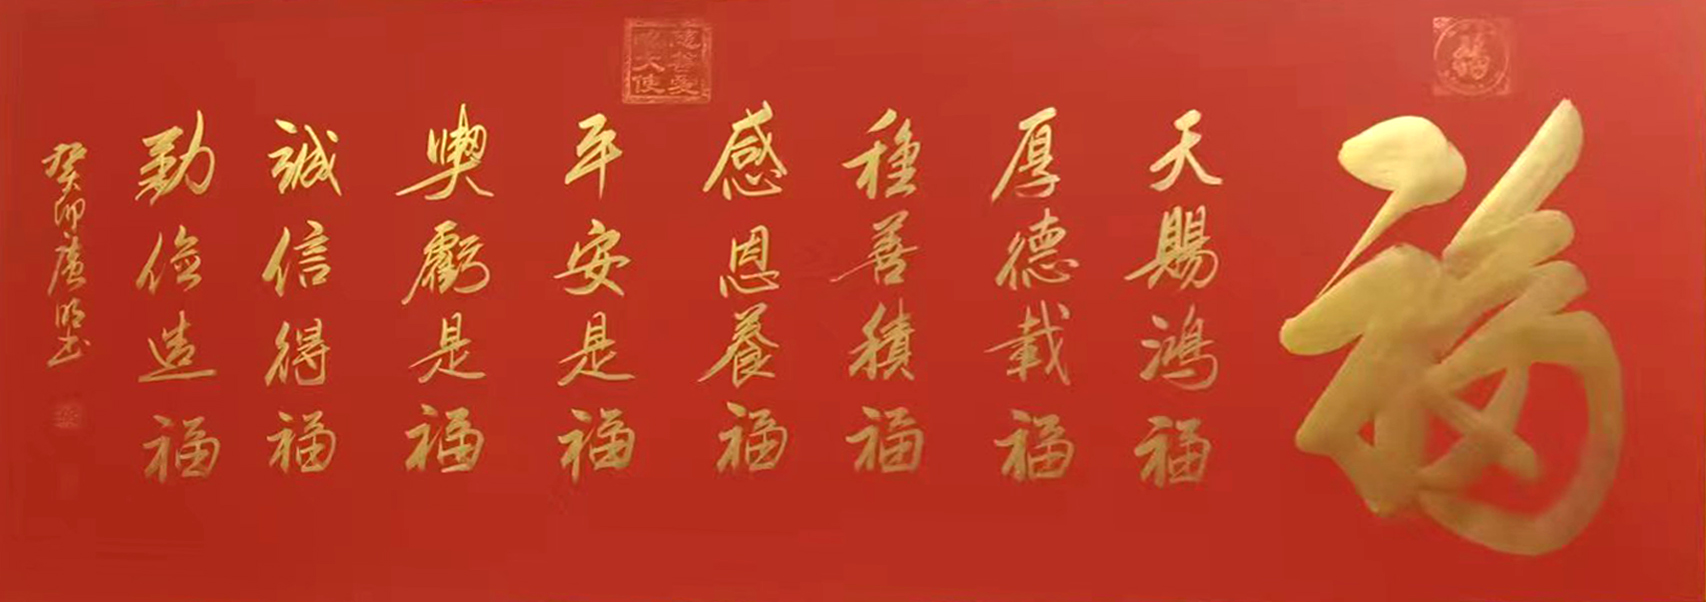 福
天賜鴻福
厚德載福
種善積福
感恩養福
平安是福
喫虧是福
誠信得福
勤儉造福
癸卯廣明書